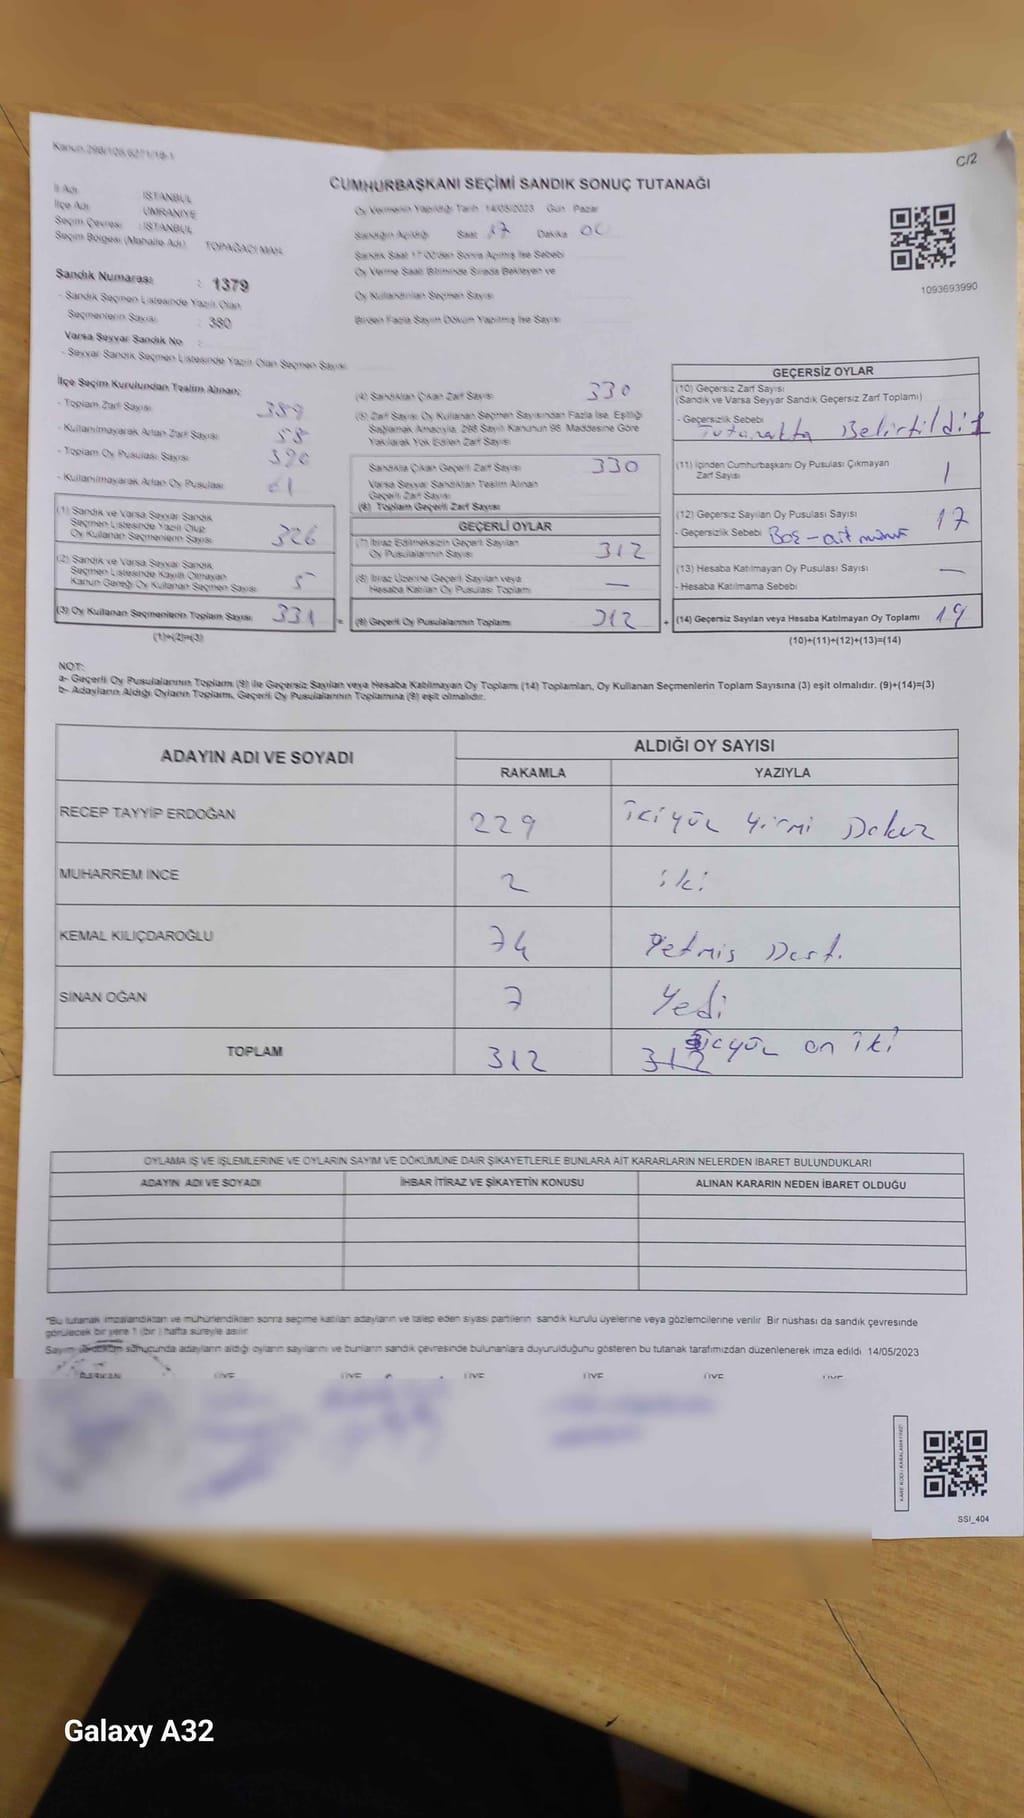 Kanun 298/108,6271/19-1
C/2
CUMHURBAŞKANI SEÇİMİ SANDIK SONUÇ TUTANAĞI
İl Adı : İSTANBUL
İlçe Adı : ÜMRANİYE
Seçim Çevresi : İSTANBUL
Seçim Bölgesi (Mahalle Adı) TOPAĞACI MAH.
Oy Vermenin Yapıldığı Tarih 14/05/2023 Gün Pazar
Sandığın Açıldığı Saat 17 Dakika 00
Sandık Saat 17:00'den Sonra Açılmış İse Sebebi
Oy Verme Saati Bitiminde Sırada Bekleyen ve
Oy Kullandırılan Seçmen Sayısı
Birden Fazla Sayım Döküm Yapılmış İse Sayısı
1093693990
Sandık Numarası : 1379
- Sandık Seçmen Listesinde Yazılı Olan
Seçmenlerin Sayısı : 380
Varsa Seyyar Sandık No :
- Seyyar Sandık Seçmen Listesinde Yazılı Olan Seçmen Sayısı
İlçe Seçim Kurulundan Teslim Alınan;
- Toplam Zarf Sayısı 389
- Kullanılmayarak Artan Zarf Sayısı 58
- Toplam Oy Pusulası Sayısı 390
- Kullanılmayarak Artan Oy Pusulası
(1) Sandık ve Varsa Seyyar Sandık
Seçmen Listesinde Yazılı Olup
Oy Kullanan Seçmenlerin Sayısı 326
(2) Sandık ve Varsa Seyyar Sandık
Seçmen Listesinde Kayıtlı Olmayan
Kanun Gereği Oy Kullanan Seçmen Sayısı 5
(3) Oy Kullanan Seçmenlerin Toplam Sayısı 331 =
(1)+(2)=(3)
(4) Sandıktan Çıkan Zarf Sayısı 330
(5) Zarf Sayısı Oy Kullanan Seçmen Sayısından Fazla İse, Eşitliği
Sağlamak Amacıyla, 298 Sayılı Kanunun 98. Maddesine Göre
Yakılarak Yok Edilen Zarf Sayısı
Sandıkta Çıkan Geçerli Zarf Sayısı 330
Varsa Seyyar Sandıktan Teslim Alınan
Geçerli Zarf Sayısı
(6) Toplam Geçerli Zarf Sayısı
GEÇERLİ OYLAR
(7) İtiraz Edilmeksizin Geçerli Sayılan
Oy Pusulalarının Sayısı 312
(8) İtiraz Üzerine Geçerli Sayılan veya
Hesaba Katılan Oy Pusulası Toplamı —
(9) Geçerli Oy Pusulalarının Toplamı 312 +
GEÇERSİZ OYLAR
(10) Geçersiz Zarf Sayısı
(Sandık ve Varsa Seyyar Sandık Geçersiz Zarf Toplamı)
- Geçersizlik Sebebi Tutanakta Belirtildi 1
(11) İçinden Cumhurbaşkanı Oy Pusulası Çıkmayan
Zarf Sayısı 1
(12) Geçersiz Sayılan Oy Pusulası Sayısı 17
- Geçersizlik Sebebi Boş -
(13) Hesaba Katılmayan Oy Pusulası Sayısı —
- Hesaba Katılmama Sebebi
(14) Geçersiz Sayılan veya Hesaba Katılmayan Oy Toplamı 19
(10)+(11)+(12)+(13)=(14)
NOT:
a- Geçerli Oy Pusulalarının Toplamı (9) ile Geçersiz Sayılan veya Hesaba Katılmayan Oy Toplamı (14) Toplamları, Oy Kullanan Seçmenlerin Toplam Sayısına (3) eşit olmalıdır. (9)+(14)=(3)
b- Adayların Aldığı Oyların Toplamı, Geçerli Oy Pusulalarının Toplamına (9) eşit olmalıdır.
ADAYIN ADI VE SOYADI
ALDIĞI OY SAYISI
RAKAMLA YAZIYLA
RECEP TAYYİP ERDOĞAN 229 İkiyüz Yirmi Dokuz
MUHARREM İNCE 2 iki
KEMAL KILIÇDAROĞLU 74 Yetmiş Dört.
SİNAN OĞAN 7 Yedi
TOPLAM 312 312 üçyüz on iki
OYLAMA İŞ VE İŞLEMLERİNE VE OYLARIN SAYIM VE DÖKÜMÜNE DAİR ŞİKAYETLERLE BUNLARA AİT KARARLARIN NELERDEN İBARET BULUNDUKLARI
ADAYIN ADI VE SOYADI İHBAR İTİRAZ VE ŞİKAYETİN KONUSU ALINAN KARARIN NEDEN İBARET OLDUĞU
*Bu tutanak imzalandıktan ve mühürlendikten sonra seçime katılan adayların ve talep eden siyasi partilerin sandık kurulu üyelerine veya gözlemcilerine verilir. Bir nüshası da sandık çevresinde
görülecek bir yere 1 (bir ) hafta süreyle asılır.
Sayım dökümün sonucunda adayların aldığı oyların sayılarını ve bunların sandık çevresinde bulunanlara duyurulduğunu gösteren bu tutanak tarafımızdan düzenlenerek imza edildi. 14/05/2023
BAŞKAN ÜYE ÜYE ÜYE ÜYE ÜYE ÜYE
KARE KODU KARALAMAYINIZ!
SSI_404
Galaxy A32